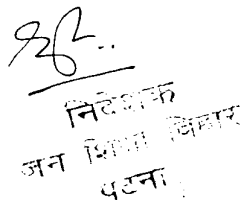 निदेशक
जन शिक्षा बिहार
पटना